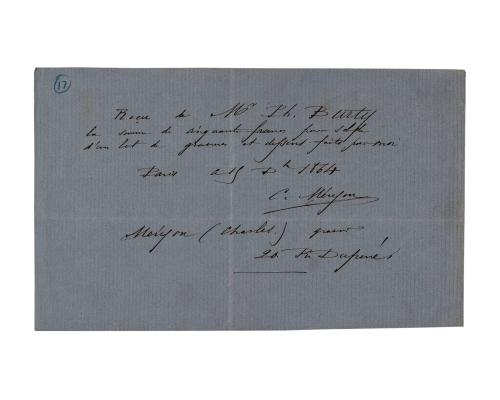 17
Reçu de Mr Ph. Burty
la somme de cinquante francs pour solde
d'un lot de gravures et dessins faits par moi
Paris 15 Xbre 1864
C. Méryon
Meryon (Charles) graveur
20 R. Duperré